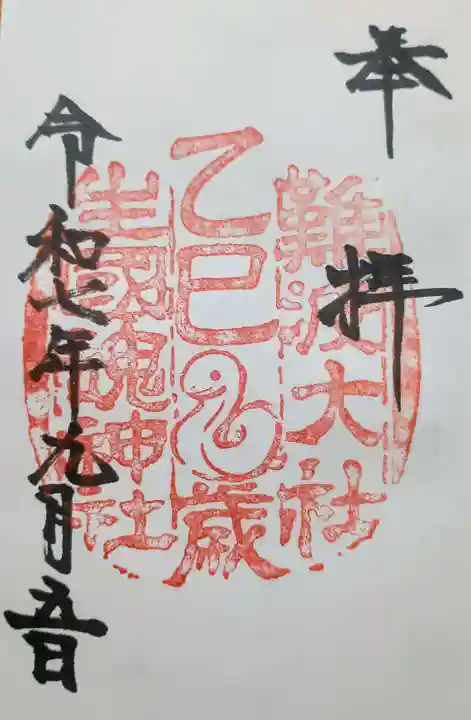 奉拝
難波大社
乙巳歳
生國魂神社
令和七年九月五日